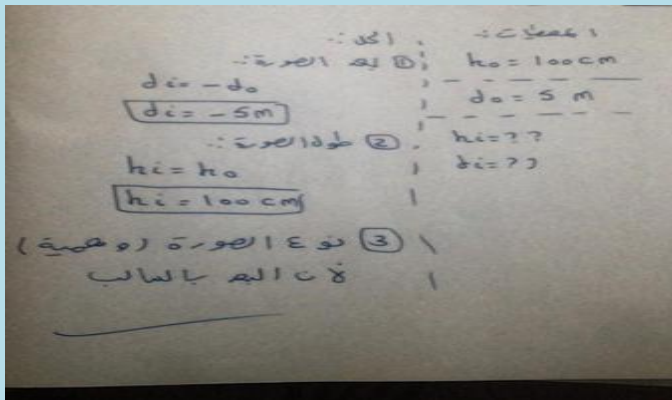 المعطيات:-
ho = 100 cm
do = 5 m
hi = ??
di = ??
الحل:-
① بعد الصورة:-
di = - do
di = - 5m
② طول الصورة:-
hi = ho
hi = 100 cm
③ نوع الصورة (وهمية)
لأن البعد بالسالب